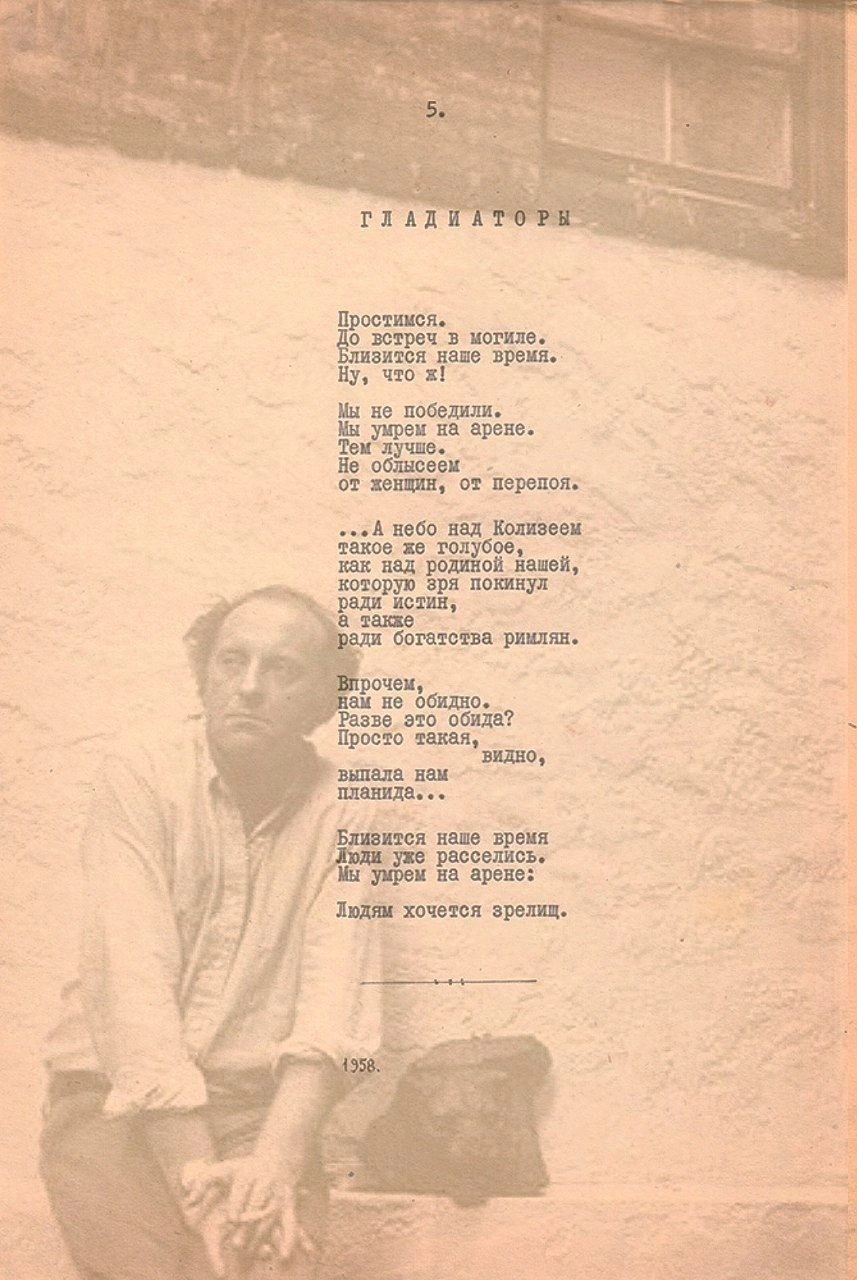 5.
ГЛАДИАТОРЫ
Простимся.
До встреч в могиле.
Близится наше время.
Ну, что ж!
Мы не победили.
Мы умрем на арене.
Тем лучше.
Не облысеем
от женщин, от перепоя.
...А небо над Колизеем
такое же голубое,
как над родиной нашей,
которую зря покинул
ради истин,
а также
ради богатства римлян.
Впрочем,
нам не обидно.
Разве это обида?
Просто такая,
видно,
выпала нам
планида...
Близится наше время
Люди уже расселись.
Мы умрем на арене:
Людям хочется зрелищ.
1958.